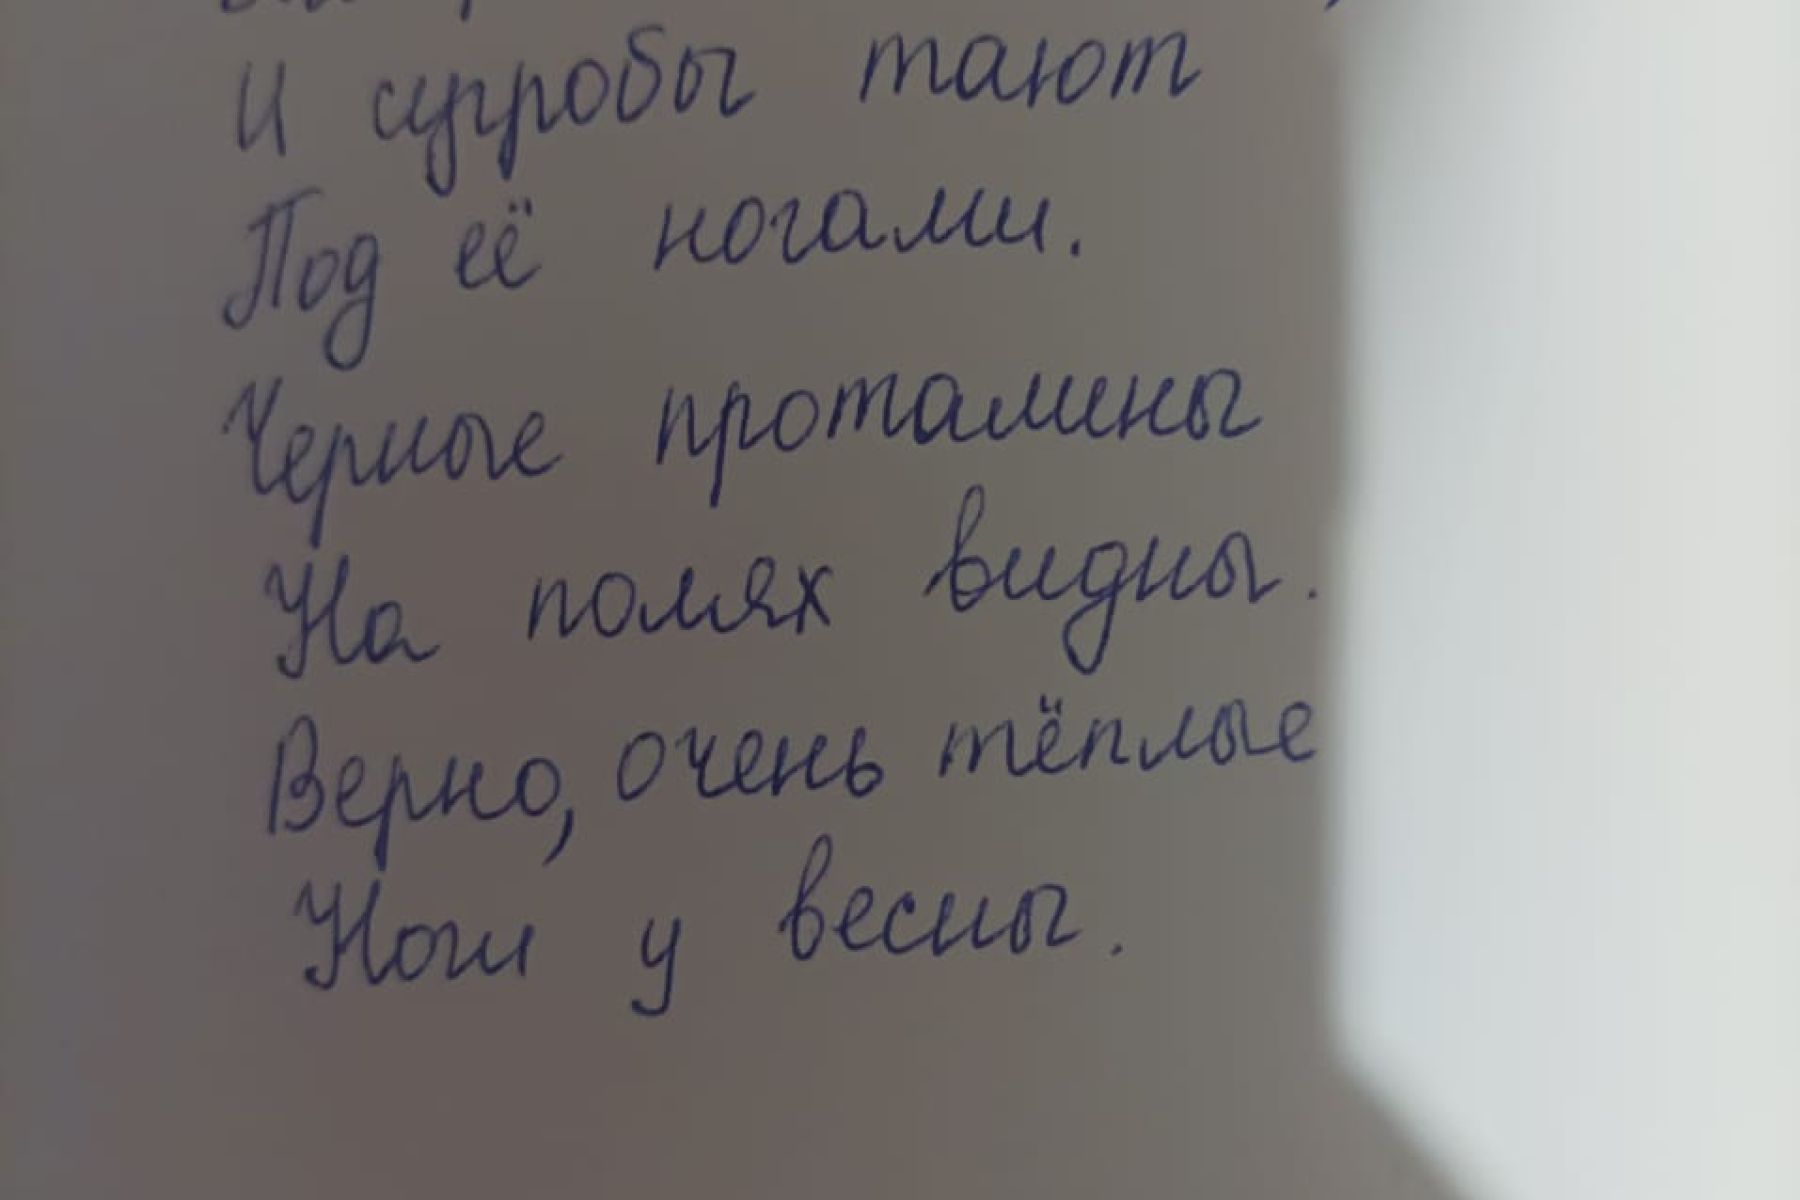 И сугробы тают
Под её ногами.
Черные проталины
На полях видны.
Верно, очень тёплые
Ноги у весны.